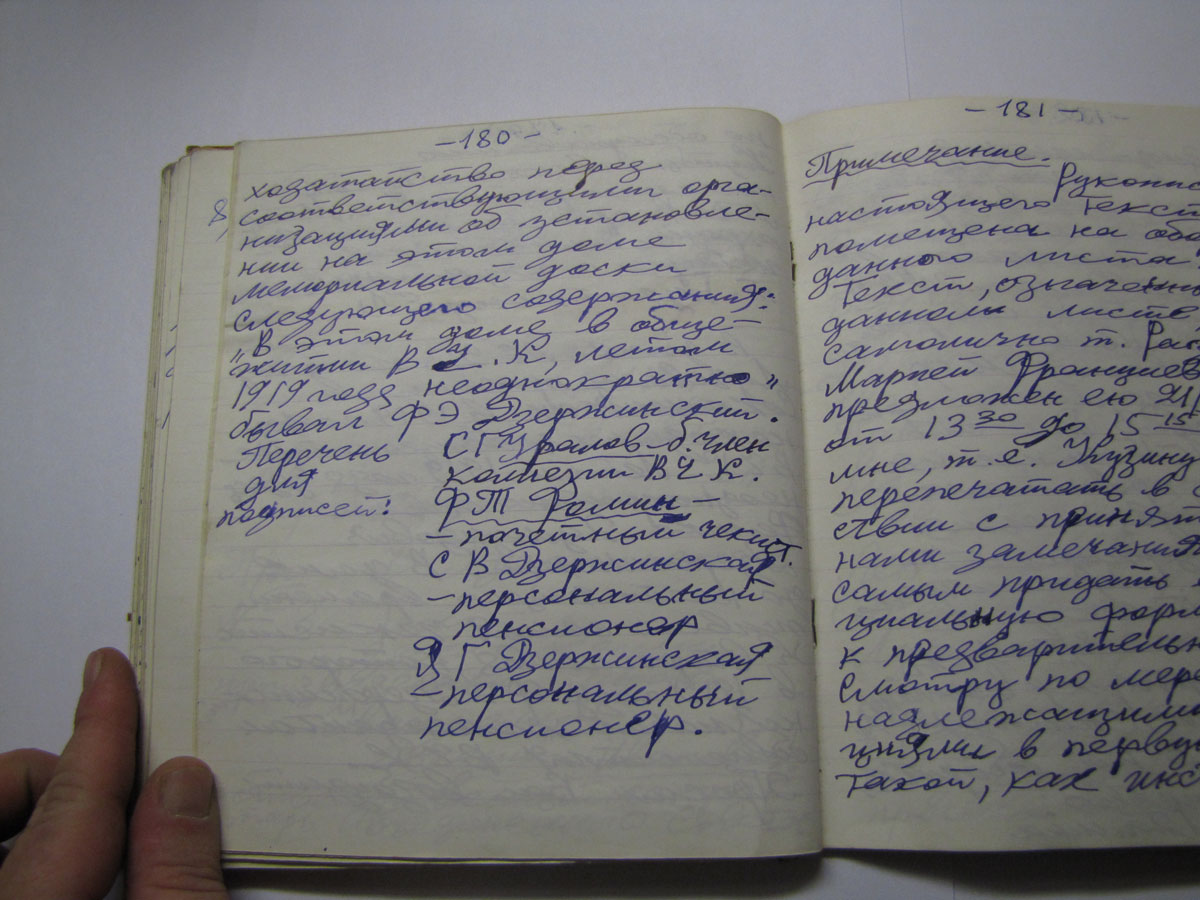 -180-
ходатайство перед
соответствующими орга-
низациями об установле-
нии на этом доме
мемориальной доски
следующего содержания:
„В этом доме в обще-
житии В Ч . К, летом
1919 года неоднократно"
бывал ФЭ Дзержинский.
Перечень С Г Уралов-б. член
для коллегии В Ч К.
подписей: Ф Т Фомин-
-почетный чекист.
С В Дзержинская
-персональный
пенсионер
Я Г Дзержинская
-персональный
пенсионер.
-181-
Примечание.
Рукопи
настоящего текст
помещена на обо
данного листа.
Текст,
данном листе,
самолично т.
Марией Францев
предложен ею
от 13 30 до 15 15
мне, т. е. Кузину
перепечатать в
ствии с принят
нами замечания
самым придать
циальную форм
к предварительн
смотру по мере
надлежащими
циями в перву
такой, как инс